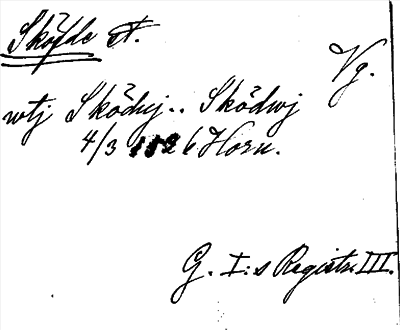 Skövde st.
Vg.
wtj Sködwj.. Sködwj
4/3 1526 Horn.
G. I:s Registr. III.